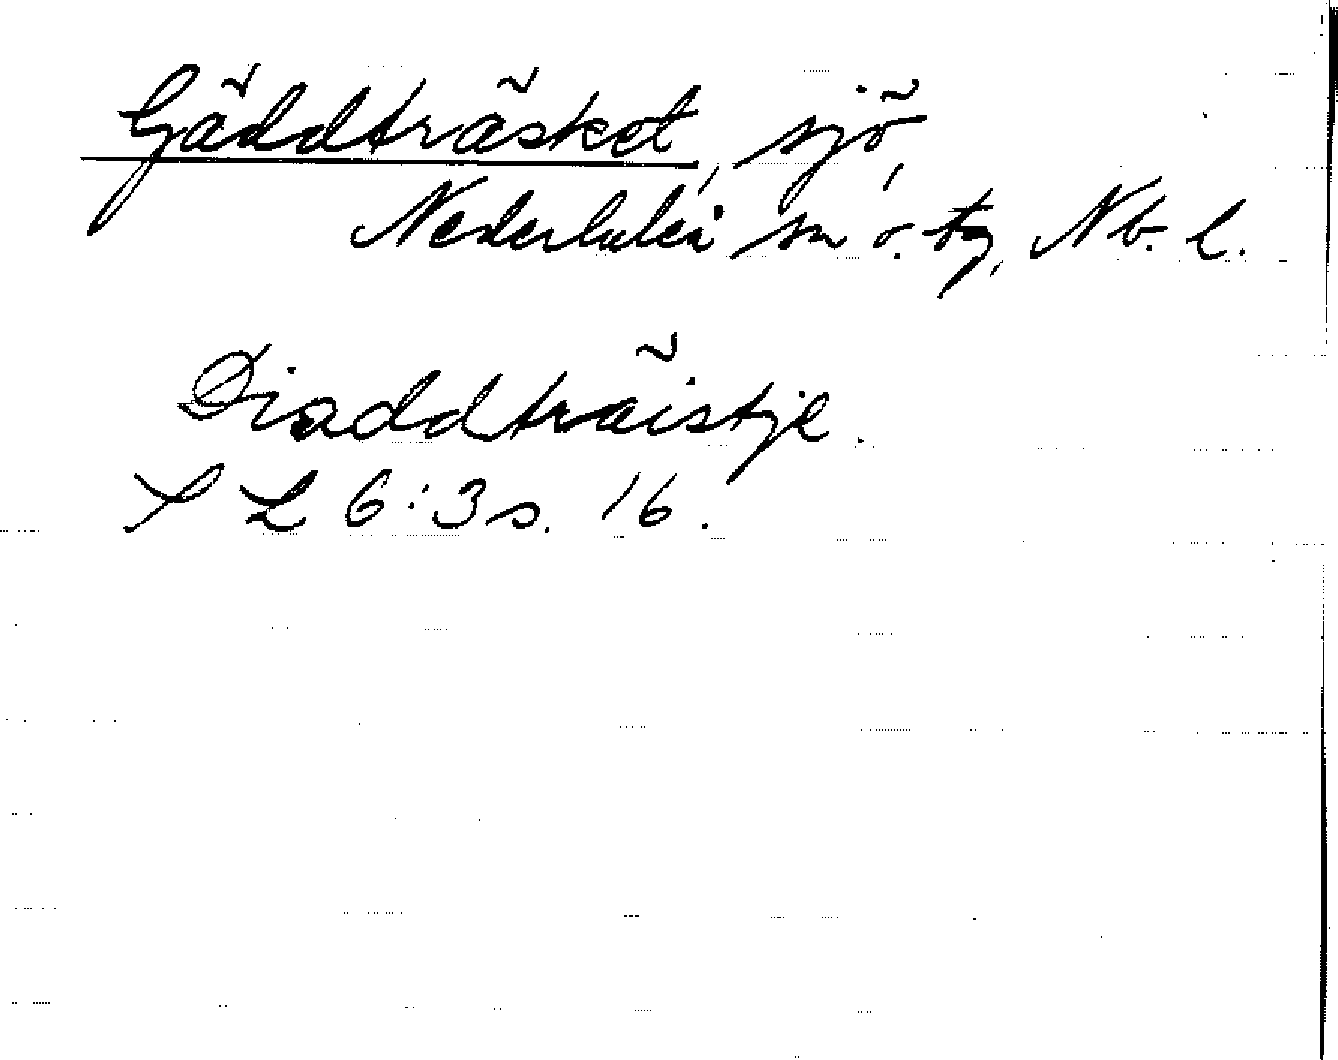 Gäddträsket, sjö,
Nederluleå sn o. tg, Nb. l.
Diäddträistje.
S L 6:3 s. 16.